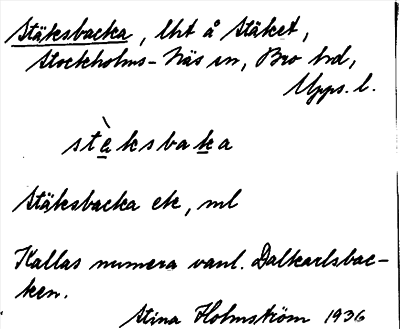 Stäksbacka, lht å Stäket,
Stockholms-Näs sn, Bro hd,
Upps. l.
stè̱ksbaḵa
Stäksbacka ek, ml
Kallas numera vanl. Dalkarlsbac-
ken.
Stina Holmström 1936